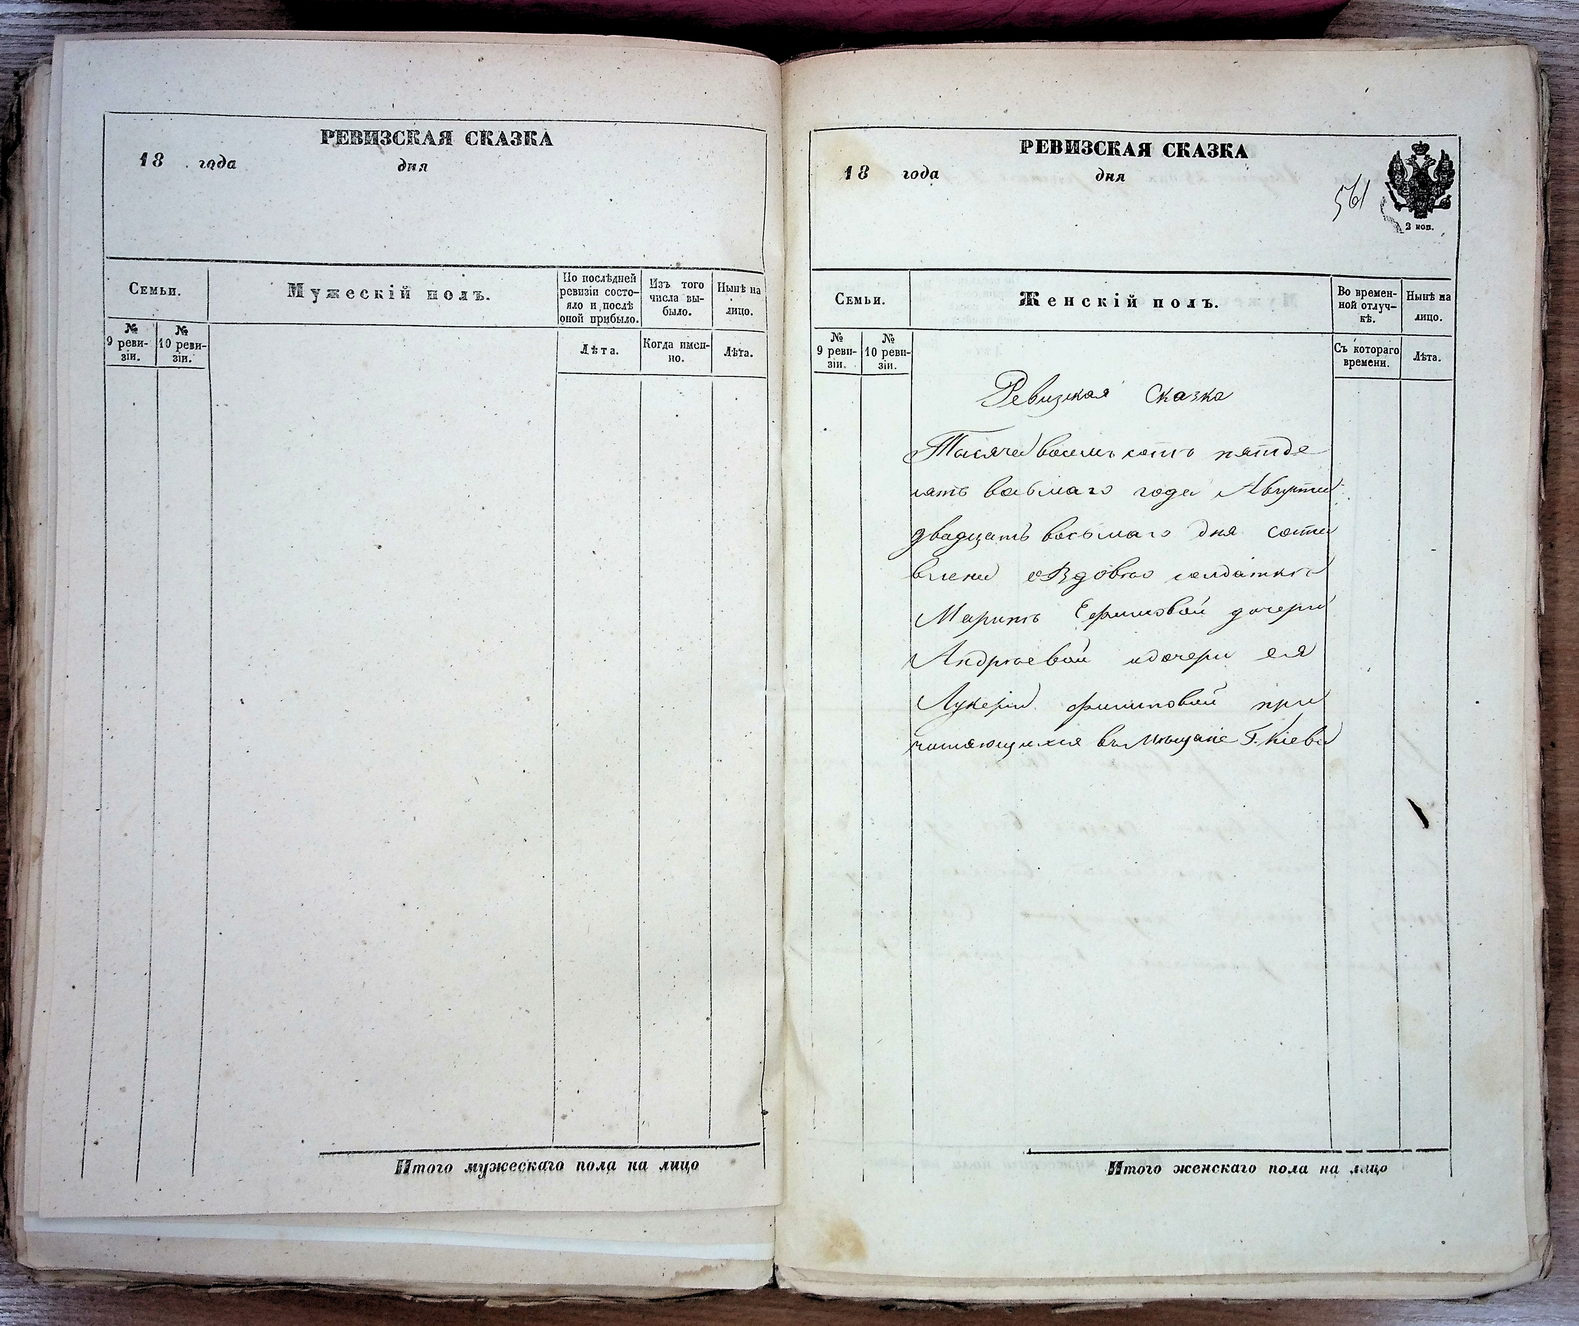 РЕВИЗСКАЯ СКАЗКА
18 года дня
Семьи.
Мужескій полъ.
По послѣдней
ревизіи состо-
яло и послѣ
оной прибыло.
Изъ того
числа вы-
было.
Нынѣ на
лицо.
№
9 реви-
зіи.
№
10 реви-
зіи.
Лѣта.
Когда имен-
но.
Лѣта.
Итого мужескаго пола на лицо
РЕВИЗСКАЯ СКАЗКА
18 года дня
561
2 коп.
Семьи.
Женскій полъ.
Во времен-
ной отлуч-
кѣ.
Нынѣ на
лицо.
№
9 реви-
зіи.
№
10 реви-
зіи.
Съ котораго
времени.
Лѣта.
Ревизкая Сказка
Тысяча восемь сотъ пятде
сятъ восьмаго года Августа
двадцать восьмаго дня соста
влена о Вдовѣ солдаткѣ
Марите Ефимовой дочери
Андрѣевой и дочери ея
Лукеріи филиповой при
числяющихся въ Мѣщане Г. Кіева
Итого женскаго пола на лицо